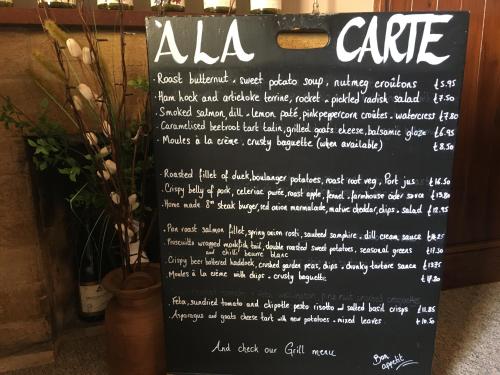 À LA CARTE
· Roast butternut & sweet potato soup, nutmeg croûtons £5.95
· Ham hock and artichoke terrine, rocket & pickled radish salad £7.50
· Smoked salmon, dill & lemon paté, pink peppercorn croûtes & watercress £7.80
· Caramelised beetroot tart tatin, grilled goats cheese, balsamic glaze £6.95
· Moules à la crème & crusty baguette (when available) £8.50
· Roasted fillet of duck, boulanger potatoes, roast root veg, Port jus £16.50
· Crispy belly of pork, celeriac purée, roast apple, fennel & farmhouse cider sauce £13.80
· Home made 8oz steak burger, red onion marmalade, mature cheddar, chips & salad £12.95
· Pan roast salmon fillet, spring onion rosti, sauteed samphire & dill cream sauce
· Proscuitto wrapped monkfish tail, double roasted sweet potatoes, seasonal greens £17.50
and chilli beurre blanc
· Crispy beer battered haddock, crushed garden peas, chips & chunky tartare sauce £13.75
· Moules à la crème with chips & crusty baguette
· Feta, sundried tomato and chipotle pesto risotto & salted basil crisps £11.85
· Asparagus and goats cheese tart with new potatoes & mixed leaves £10.50
And check our Grill menu
Bon
appetit